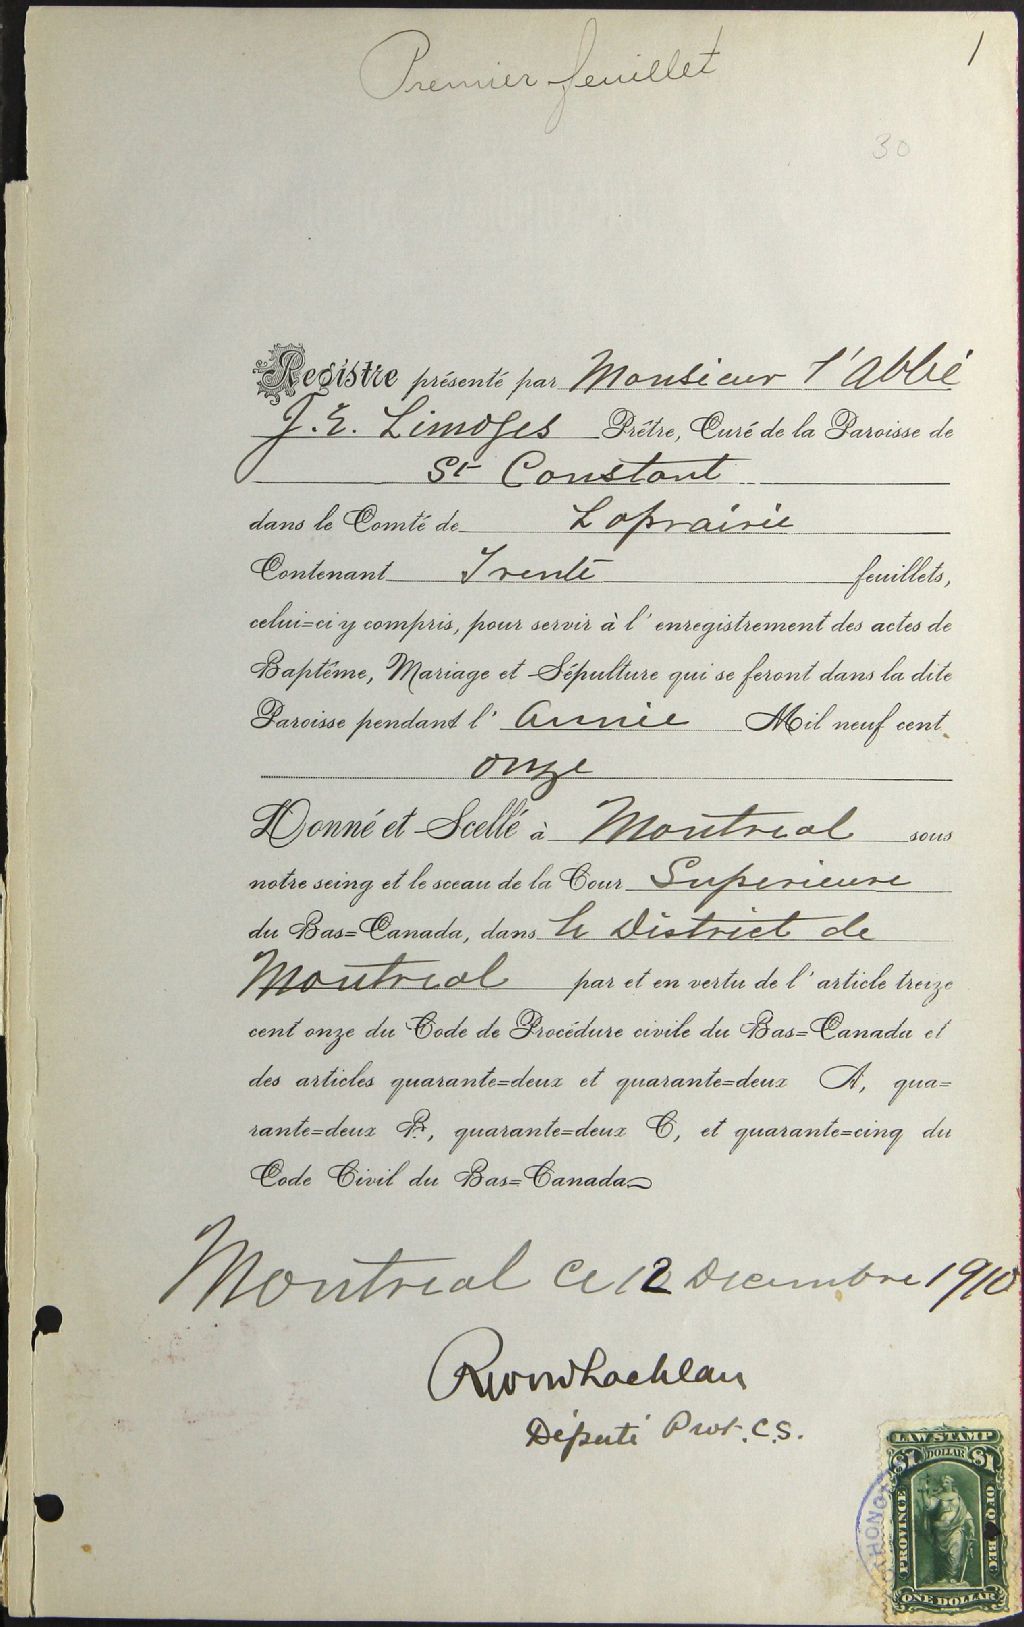 Premier feuillet
1
30
Registre présenté par Monsieur l'Abbé
J. E. Limoges Prêtre, Curé de la Paroisse de
St Constant
dans le Comté de Laprairie
Contenant Trente feuillets,
celui=ci y compris, pour servir à l'enregistrement des actes de
Baptême, Mariage et Sépulture qui se feront dans la dite
Paroisse pendant l'année Mil neuf cent
onze
Donné et Scellé à Montreal sous
notre seing et le sceau de la Cour Superieure
du Bas=Canada, dans le District de
Montreal par et en vertu de l'article treize
cent onze du Code de Procédure civile du Bas=Canada et
des articles quarante=deux et quarante=deux A, qua=
rante=deux B, quarante=deux C, et quarante=cinq du
Code Civil du Bas=Canada
Montreal ce 12 Decembre 1910
Député Prot. C.S.
LAW STAMP
$1 DOLLAR $1
PROVINCE OF QUEBEC
ONE DOLLAR